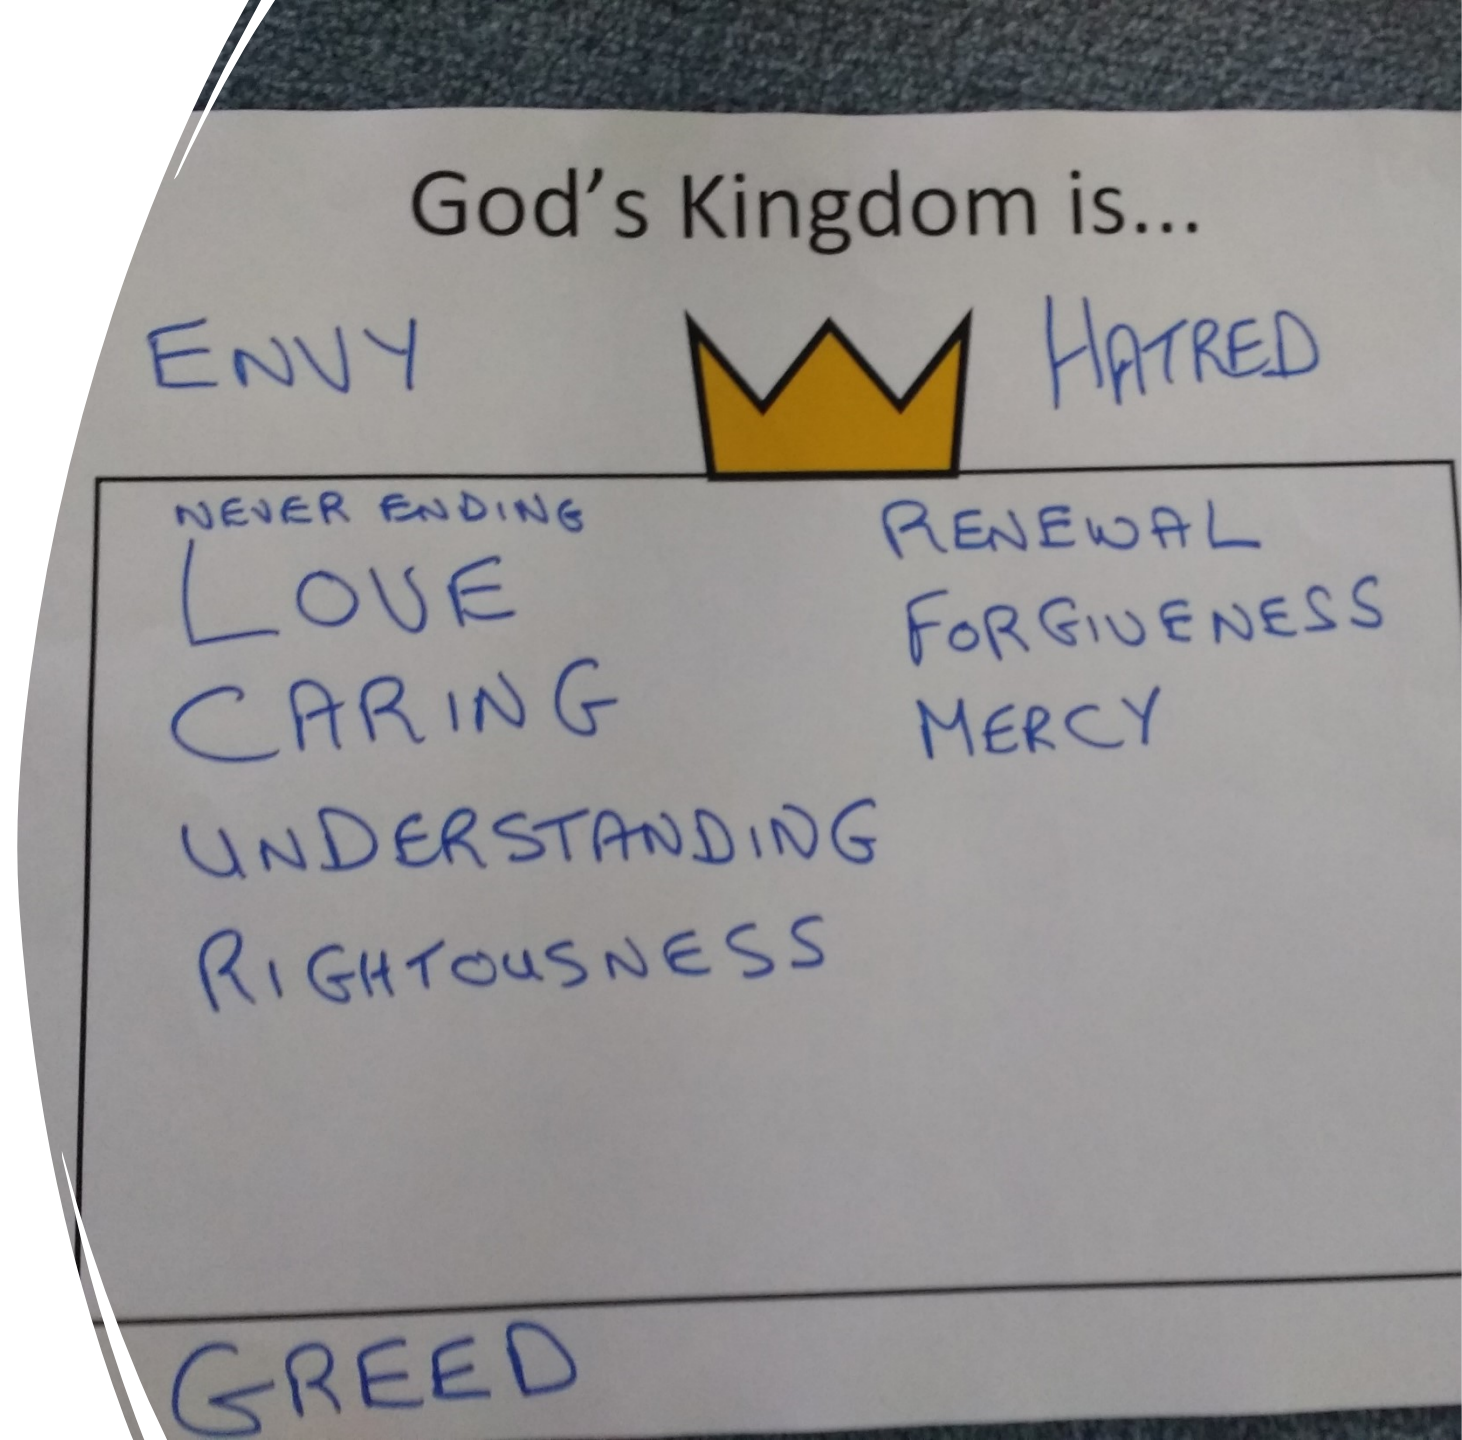 God's Kingdom is...
ENVY
HATRED
NEVER ENDING
LOVE
CARING
UNDERSTANDING
RIGHTOUSNESS
RENEWAL
FORGIVENESS
MERCY
GREED